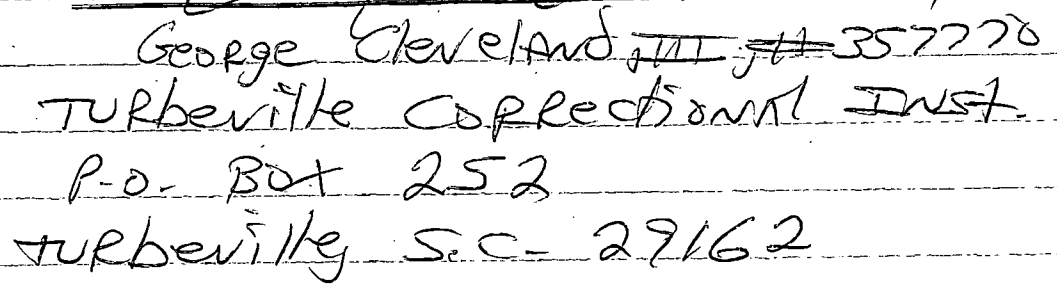 George Cleveland, III, # 357770
Turbeville Correctional Inst.
P.O. Box 252
Turbeville, S.C. 29162